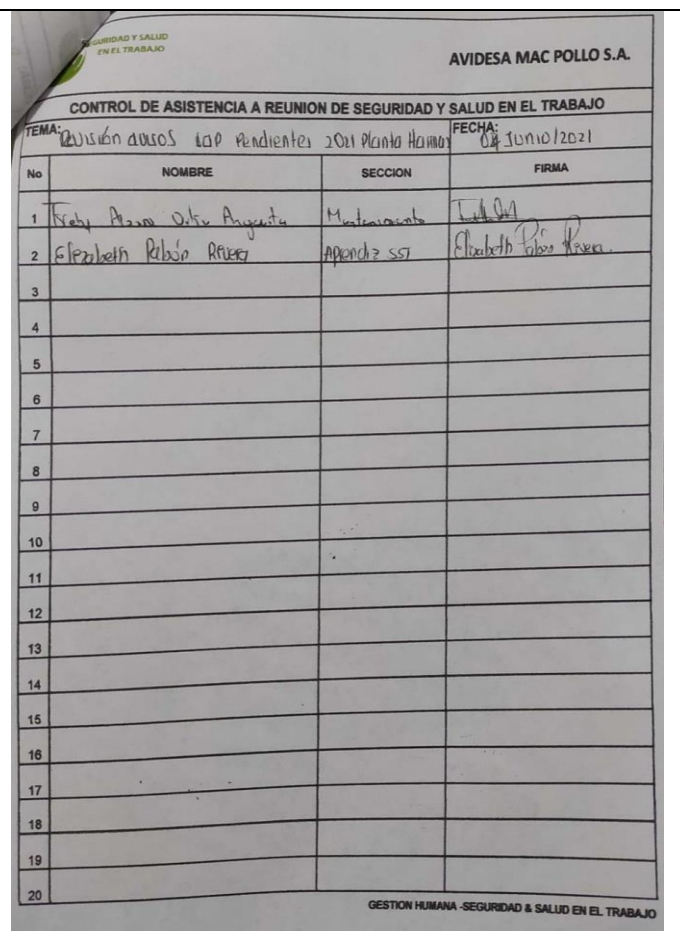 SEGURIDAD Y SALUD
EN EL TRABAJO
AVIDESA MAC POLLO S.A.
CONTROL DE ASISTENCIA A REUNION DE SEGURIDAD Y SALUD EN EL TRABAJO
TEMA: Revisión avisos Pendientes 2021 Planta
FECHA: Junio/2021
No NOMBRE SECCION FIRMA
1 Ortiz Mantenimiento
2 Elizabeth Pabón Rivera Aprendiz SST Elizabeth Pabón Rivera
3
4
5
6
7
8
9
10
11
12
13
14
15
16
17
18
19
20
GESTION HUMANA -SEGURIDAD & SALUD EN EL TRABAJO